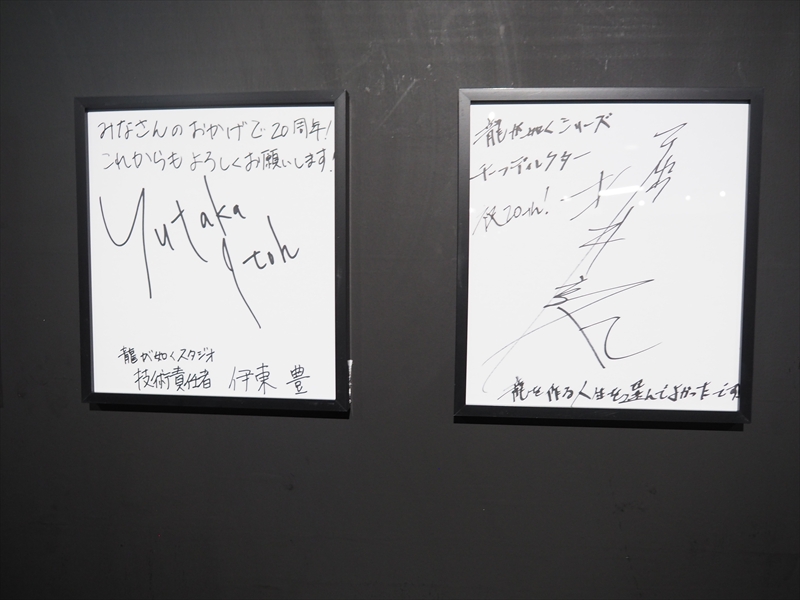 みなさんのおかげで20周年!
これからもよろしくお願いします!
Yutaka
Itoh
龍が如くスタジオ
技術責任者 伊東 豊
龍が如くシリーズ
チーフディレクター
祝20th!
龍を作る人生を選んでよかったです